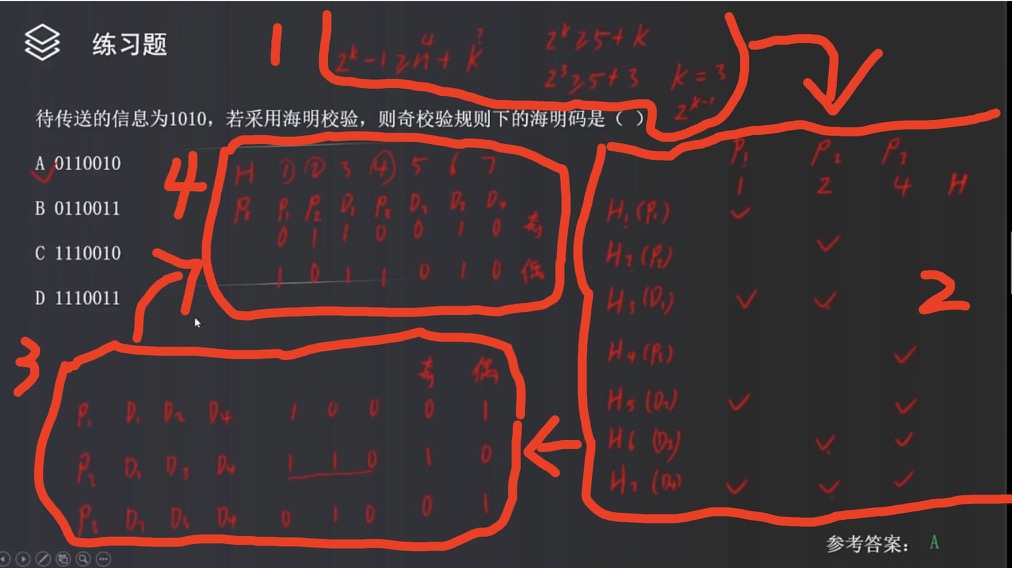 练习题
1
2^k-1≥n+k
4 ?
2^k≥5+k
2^3≥5+3 k=3
2^k-1
待传送的信息为1010，若采用海明校验，则奇校验规则下的海明码是（ ）
A 0110010
B 0110011
C 1110010
D 1110011
4
H ① ② 3 ④ 5 6 7
P₁ P₂ D₁ P₃ D₂ D₃ D₄
0 1 1 0 0 1 0 奇
1 0 1 1 0 1 0 偶
2
P₁ P₂ P₃
1 2 4 H
H₁(P₁) ✓
H₂(P₂) ✓
H₃(D₁) ✓ ✓
H₄(P₃) ✓
H₅(D₂) ✓ ✓
H6(D₃) ✓ ✓
H₇(D₄) ✓ ✓ ✓
3
奇 偶
P₁ D₁ D₂ D₄ 1 0 0 0 1
P₂ D₁ D₃ D₄ 1 1 0 1 0
P₃ D₂ D₃ D₄ 0 1 0 0 1
参考答案： A